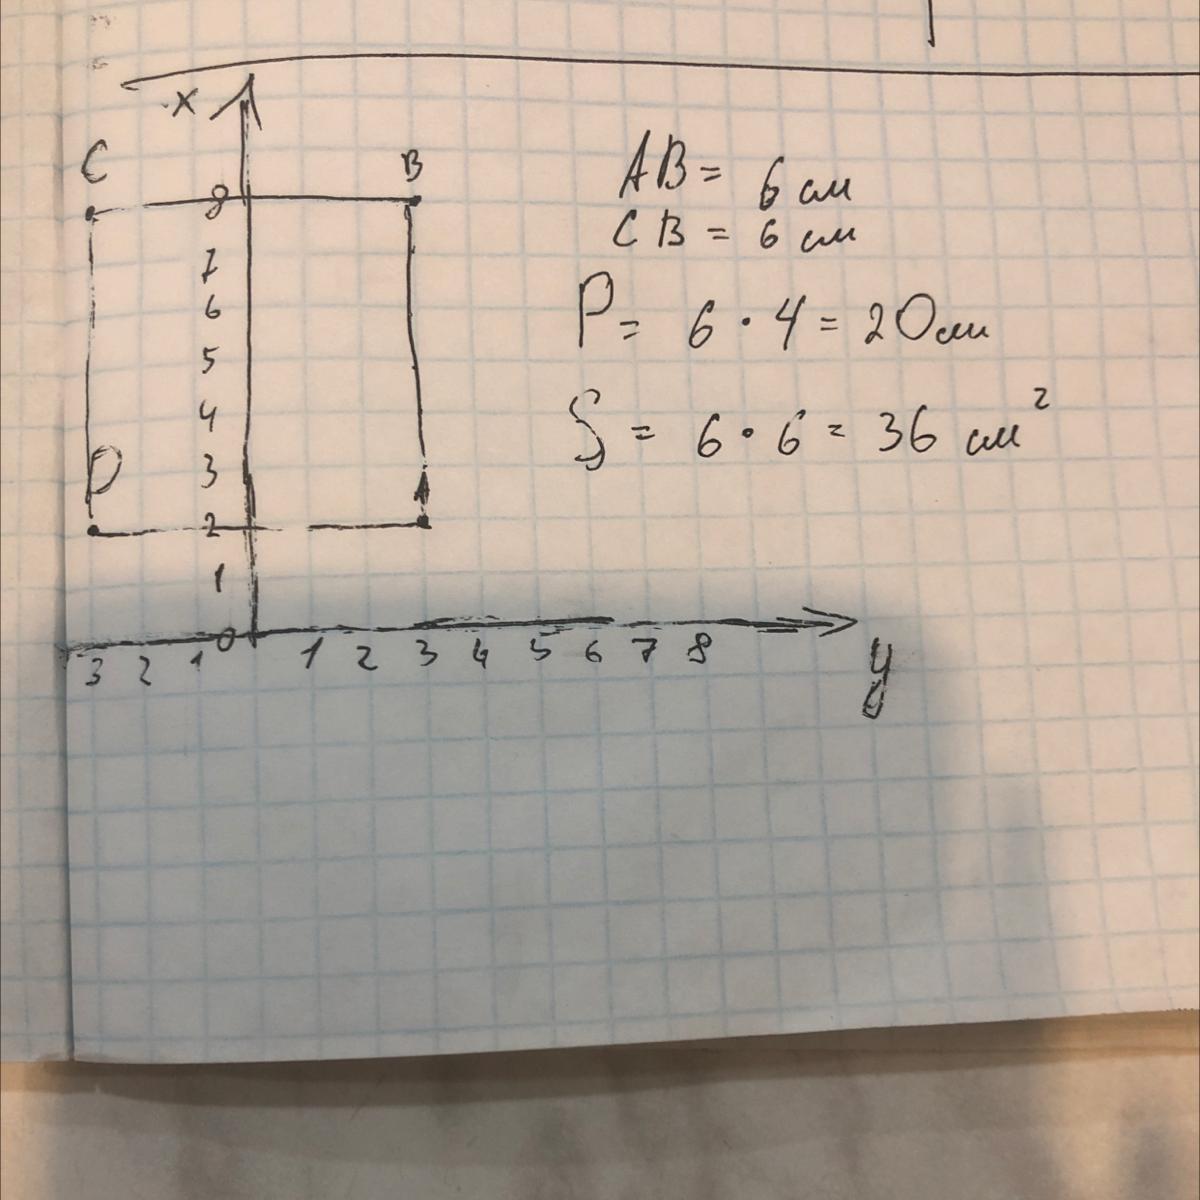 x
C B
8
7
6
5
4
D 3 A
2
1
0
3 2 1 1 2 3 4 5 6 7 8
y
AB = 6 см
CB = 6 см
P = 6 · 4 = 20 см
S = 6 · 6 = 36 см²